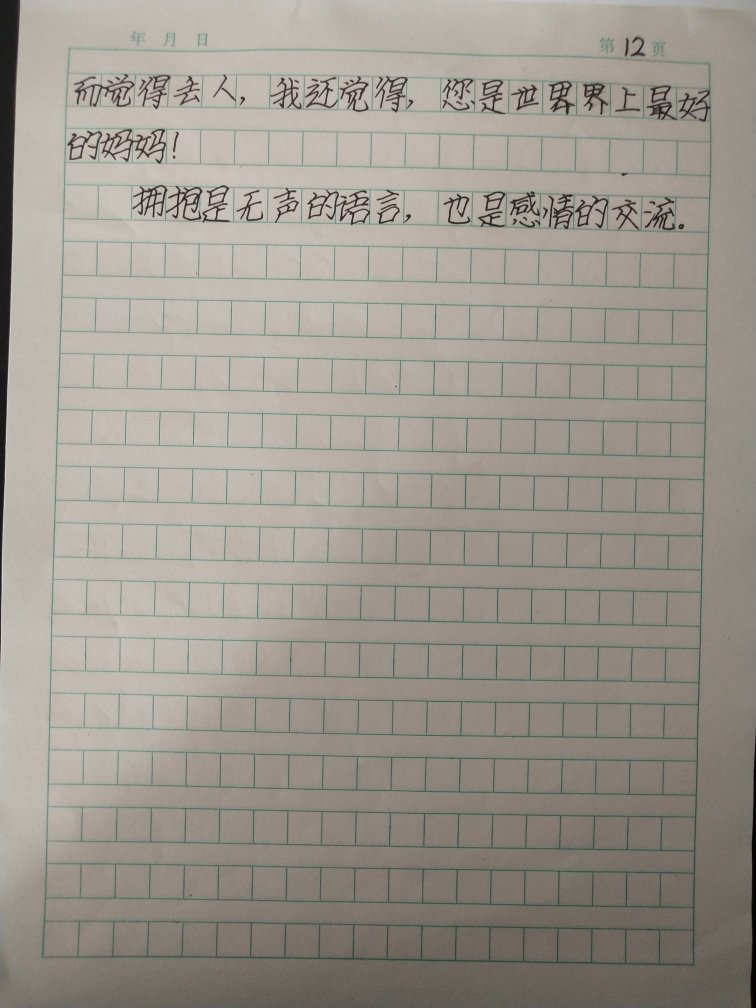 年 月 日 第12页
而觉得丢人，我还觉得，您是世界界上最好
的妈妈！
拥抱是无声的语言，也是感情的交流。